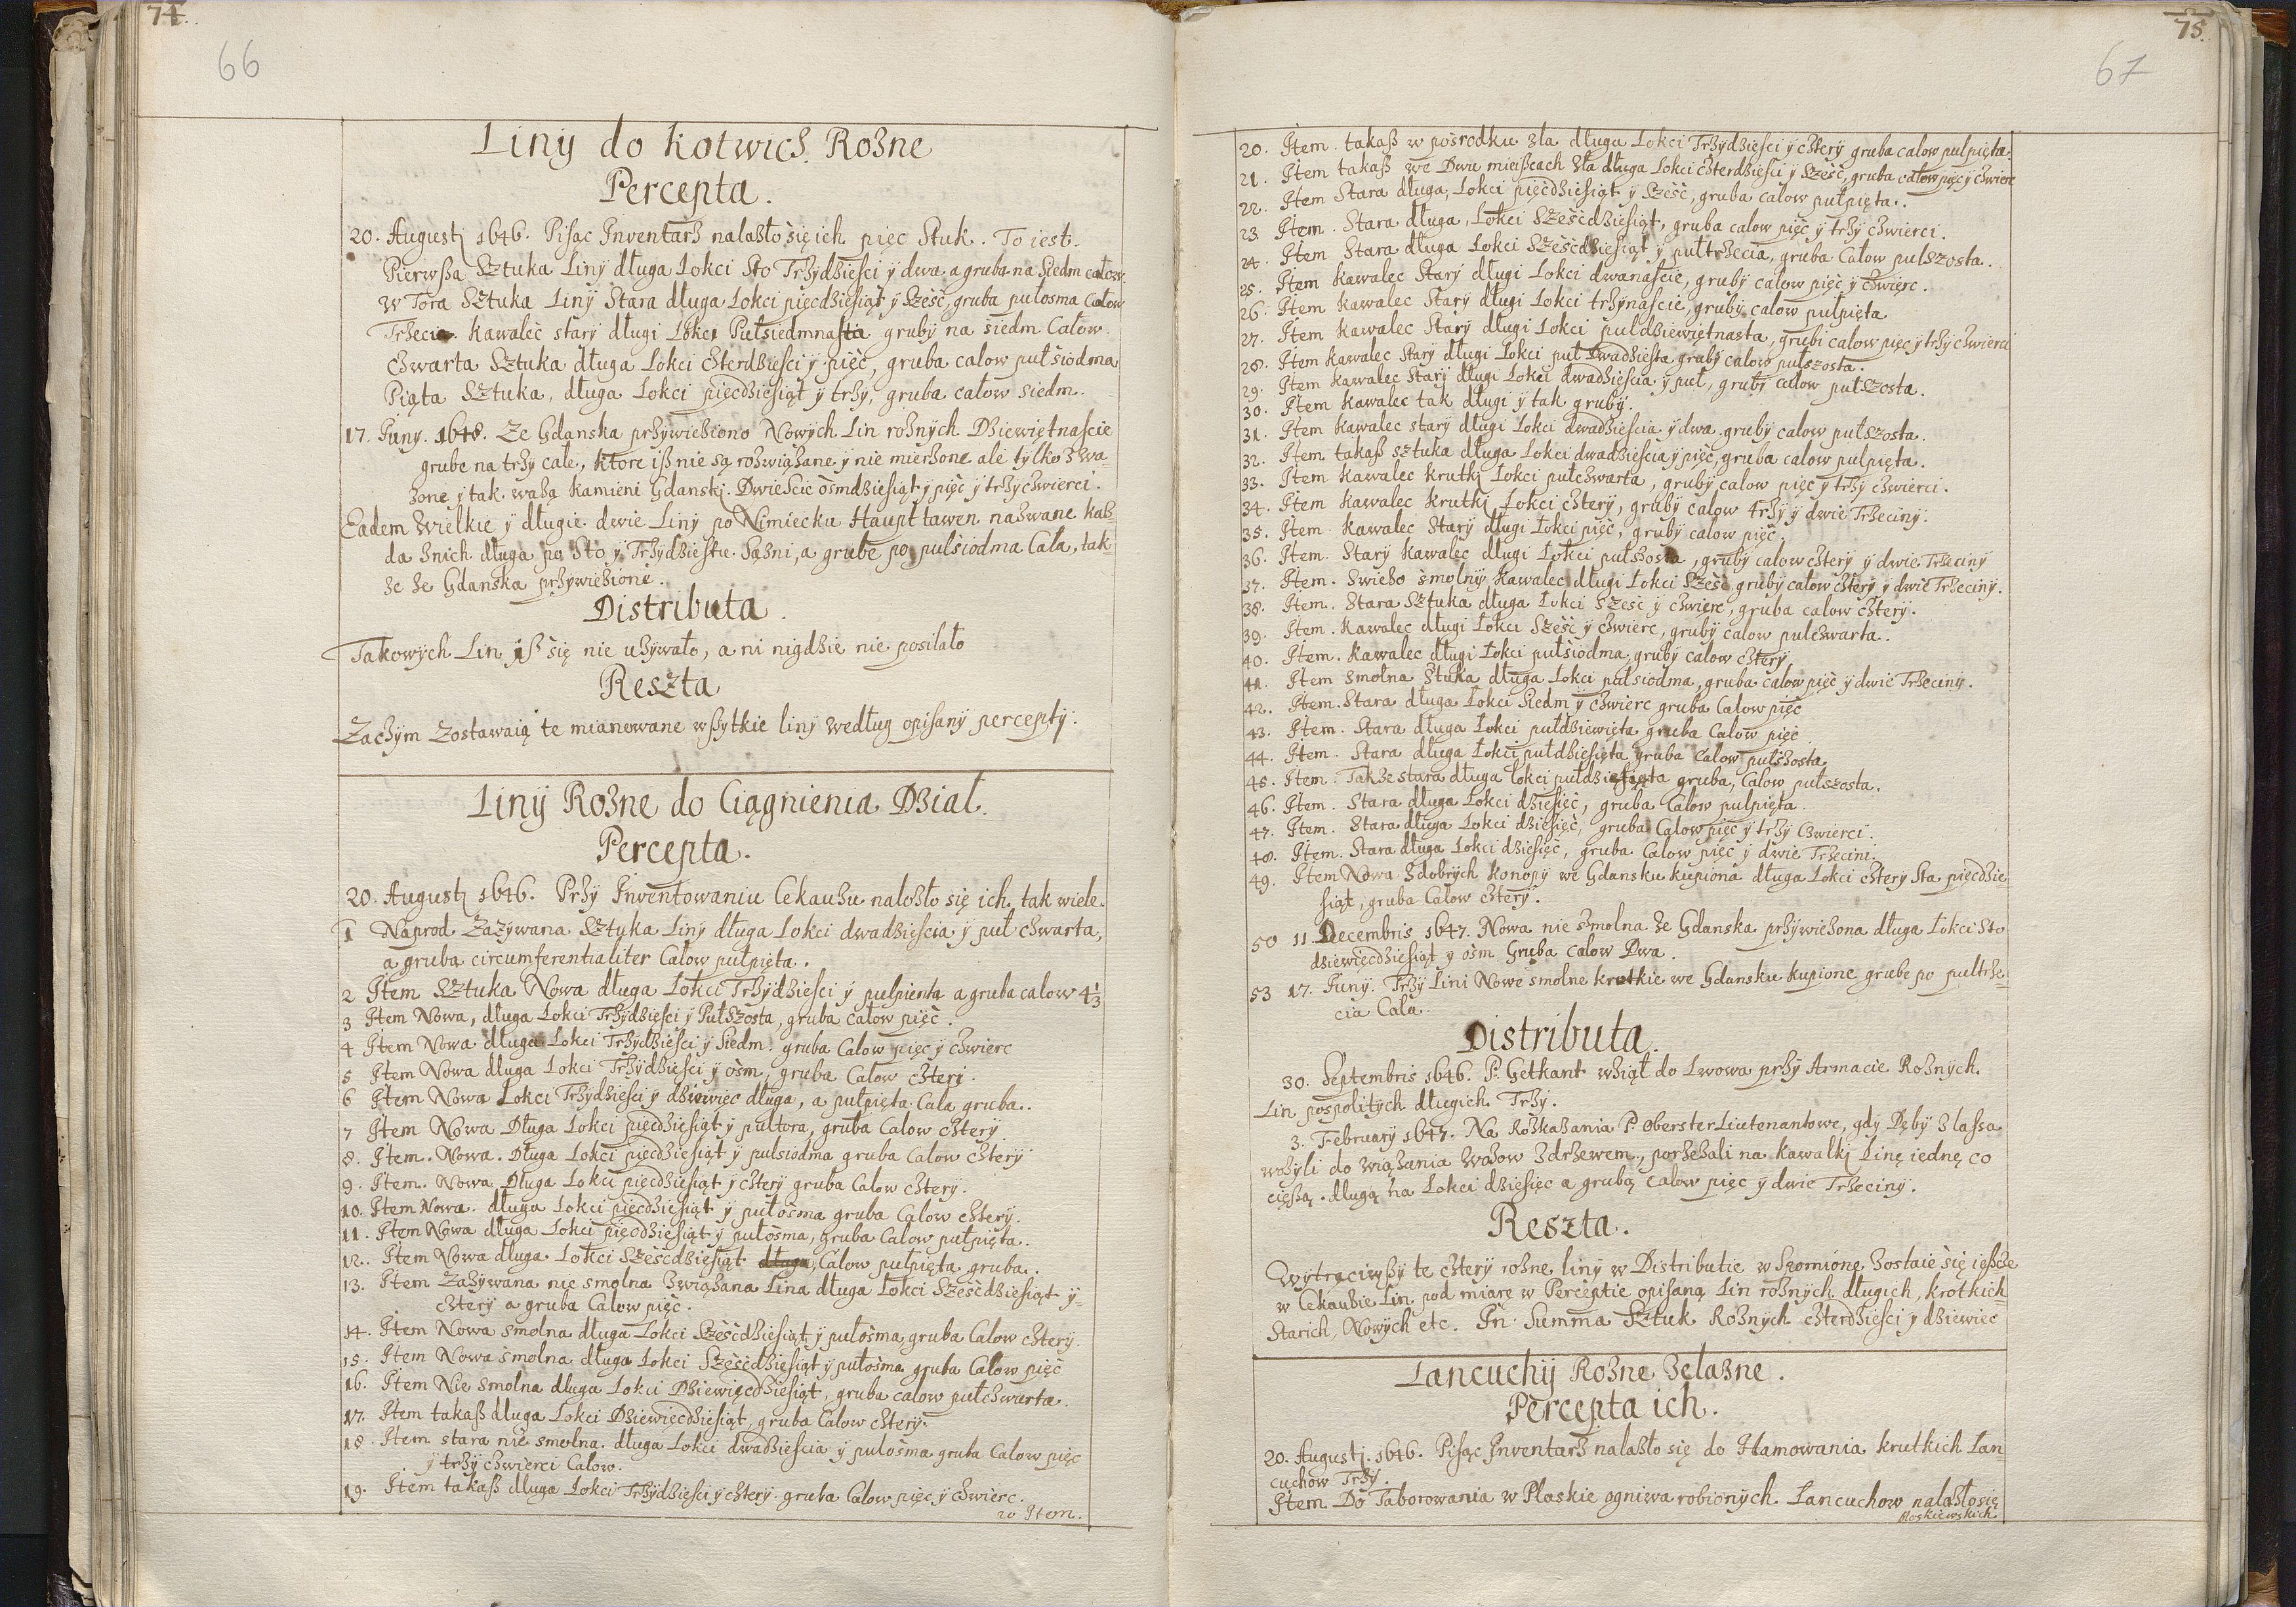 74.
66
Liny do kotwicz Rozne
Percepta.
20. Augustj 1646. Pisąc Inventarz nalazło się ich pięc Stuk. To iest.
Pierwßa Sztuka Liny długa Lokci Sto Trzydziesci y dwa a gruba na Siedm całow.
W Tora Sztuka Liny Stara długa Lokci pięcdziesiąt y Szesć, gruba pułosma Całow
Trzecia kawalec stary długi Lokci Pułsiedmnasta gruby na siedm Całow.
Czwarta Sztuka długa Lokci czterdziesci y pięć, gruba calow pułsiodma
Piąta Sztuka, długa Lokci pięcdziesiąt y trzy, gruba całow siedm.
17. Juny. 1648. Ze Gdanska przywieziono Nowych Lin roznych Dziewiętnascie
grube na trzy cale, ktore iß nie są rozwiązane y nie mierzone ale tylko zwa-
zone y tak wazą kamieni Gdanskj. Dwiescie osmdziesiąt y pięć y trzy czwierci.
Eadem Wielkie y długie dwie Liny po Nimiecku Haupttawen nazwane kaz-
da znich długa po Sto y Trzydziestu Sązni, a grube po pulsiodma Cala, tak
ze ze Gdanska przywiezione.
Distributa.
Takowych Lin iß się nie uzywało, a ni nigdzie nie posilało
Reszta
Zaczym zostawaią te mianowane wßytkie liny według opisany percepty.
Liny Rozne do Ciągnienia Dział.
Percepta.
20. Augustj 1646. Przy Inventowaniu Cekauzu nalozło się ich tak wiele.
1 Naprod Zazywana Sztuka Liny długa Lokci dwadziescia y puł czwarta,
a gruba circumferentialiter Całow pułpięta.
2 Item Sztuka Nowa długa Lokci Trzydziesci y pulpienta a gruba calow 4 1/3
3 Item Nowa, długa Lokci Trzydziesci y Pułszosta, gruba całow pięć.
4 Item Nowa długa Lokci Trzydziesci y Siedm. gruba Calow pięc y czwierc
5 Item Nowa długa Lokci Trzydziesci y osm, gruba Calow cztery.
6 Item Nowa Lokci Trzydziesci y dziewiec długa, a pułpięta Cala gruba.
7 Item Nowa Długa Lokci pięcdziesiąt y pultora, gruba Calow cztery
8. Item. Nowa. Długa Lokci pięcdziesiąt y pulsiodma gruba Calow cztery
9. Item. Nowa Długa Lokci pięcdziesiąt y cztery gruba Calow cztery.
10. Item Nowa. długa Lokci pięcdziesiąt y pułosma gruba Calow cztery.
11. Item Nowa długa Lokci pięcdziesiąt y pułosma, gruba Calow pułpięta.
12. Item Nowa długa Lokci Szescdziesiąt długa, Calow pułpięta gruba.
13. Item Zazywana nie smolna Związana Lina długa Lokci Szescdziesiąt y
cztery a gruba Calow pięc.
14. Item Nowa smolna długa Lokci Szescdziesiąt y pułosma, gruba Calow cztery.
15. Item Nowa smolna długa Lokci Szescdziesiąt y pułosma gruba Calow pięć
16. Item Nie smolna długa Lokci Dziewięcdziesiąt, gruba calow pułczwarta.
17. Item takaß długa Lokci Dziewięcdziesiąt, gruba Calow cztery.
18. Item stara nie smolna. długa Lokci dwadziescia y pulosma gruba Calow pięc
y trzy czwierci Calow.
19. Item takaß długa Lokci Trzydziesci y cztery gruba Calow pięc y czwierc.
20 Item.
75.
67
20. Item. takaß w posrodku zla długa Lokci Trzydziesci y cztery gruba calow pulpięta.
21. Item takaß we Dwu mieißcach zła długa Lokci czterdziesci y Szesć, gruba całow pięc y czwierc
22. Item Stara długa, Lokci pięcdziesiąt y Szesć, gruba calow pułpięta.
23. Item. Stara długa, Lokci Szescdziesiąt, gruba calow pięc y trzy czwierci.
24. Item Stara długa Lokci Szescdziesiąt y pułtrzecia, gruba Calow pulszosta.
25. Item kawalec Stary długi Lokci dwanascie, gruby calow pięć y czwierc.
26. Item kawalec Stary długi Lokci trzynascie, gruby calow pułpięta
27. Item kawalec Stary długi Lokci puldziewiętnasta, grubi calow pięc y trzy czwierci
28. Item kawalec Stary długi Lokci puł dwadziesta gruby calow pułszosta.
29. Item kawalec Stary długi Lokci dwadziescia y puł, gruby calow pułszosta.
30. Item kawalec tak długi y tak gruby.
31. Item kawalec stary długi Lokci dwadziescia y dwa gruby calow pułszosta.
32. Item takaß sztuka długa Lokci dwadziescia y pięc, gruba calow pulpięta.
33. Item kawalec krutkj Lokci pułczwarta, gruby calow pięc y trzy czwierci.
34. Item kawalec krutkj Lokci cztery, gruby calow trzy y dwie Trzeciny.
35. Item. kawalec Stary długi Lokci pięć, gruby calow pięć.
36. Item. Stary kawalec długi Lokci pułszosta, gruby calow cztery y dwie Trzeciny
37. Item. Swiezo smolny kawalec długi Lokci Szesć gruby calow cztery y dwie Trzeciny.
38. Item. Stara Sztuka długa Lokci Szesc y czwierc, gruba calow cztery.
39. Item. kawalec długi Lokci Szesć y czwierc, gruby calow pulczwarta.
40. Item. kawalec długi Lokci pułsiodma gruby calow cztery
41. Item smolna Stuka długa Lokci pułsiodma, gruba calow pięć y dwie Trzeciny.
42. Item. Stara długa Lokci Siedm y czwierc gruba Calow pięć
43. Item. Stara długa Lokci pułdziewięta gruba Calow pięć
44. Item. Stara długa Lokci pułdziesięta gruba Calow pułszosta
45. Item. Takze stara długa Lokci pułdziesięta gruba, Calow pułszosta.
46. Item. Stara długa Lokci dziesięć, gruba Calow pulpięta.
47. Item. Stara długa Lokci dziesięć, gruba Calow pięć y trzy czwierci.
48. Item. Stara długa Lokci dziesięć, gruba Calow pięc y dwie Trzecini.
49. Item Nowa zdobrych konopy we Gdansku kupiona długa Lokci cztery Sta pięcdzie-
siąt, gruba Calow cztery.
50 11. Decembris 1647. Nowa nie smolna ze Gdanska przywiezona długa Lokci Sto
dziewięcdziesiąt y osm Gruba calow Dwa.
53 17. Juny. Trzy Lini Nowe smolne krotkie we Gdansku kupione grube po pultrze-
cia Cala.
Distributa.
30. Septembris 1646. P. Getkant wziął do Lwowa przy Armacie Roznych.
Lin pospolitych długich Trzy.
3. February 1647. Na Rozkazania P. Oberster Liutenantowe, gdy Dęby z lassa
wozyli do wiązania wozow zdrzewem, porzezali na kawalkj Linę iednę co
cięßą. długą na Lokci dziesięc a grubą calow pięc y dwie Trzeciny.
Reszta.
Wytrąciwßy te cztery rozne liny w Distributie wspomione zostaie się ießcze
w Cekauzie Lin pod miarę w Perceptie opisaną Lin roznych długich, krotkich
Starich, Nowych etc. In Summa Sztuk Roznych czterdziesci y dziewiec
Lancuchy Rozne Zelazne.
Percepta ich.
20. Augustj. 1646. Pisąc Inventarz nalazło się do Hamowania krutkich Lan
cuchow Trzy.
Item Do Taborowania w Plaskie ogniwa robionych Lancuchow nalazło się
Moskiewskich